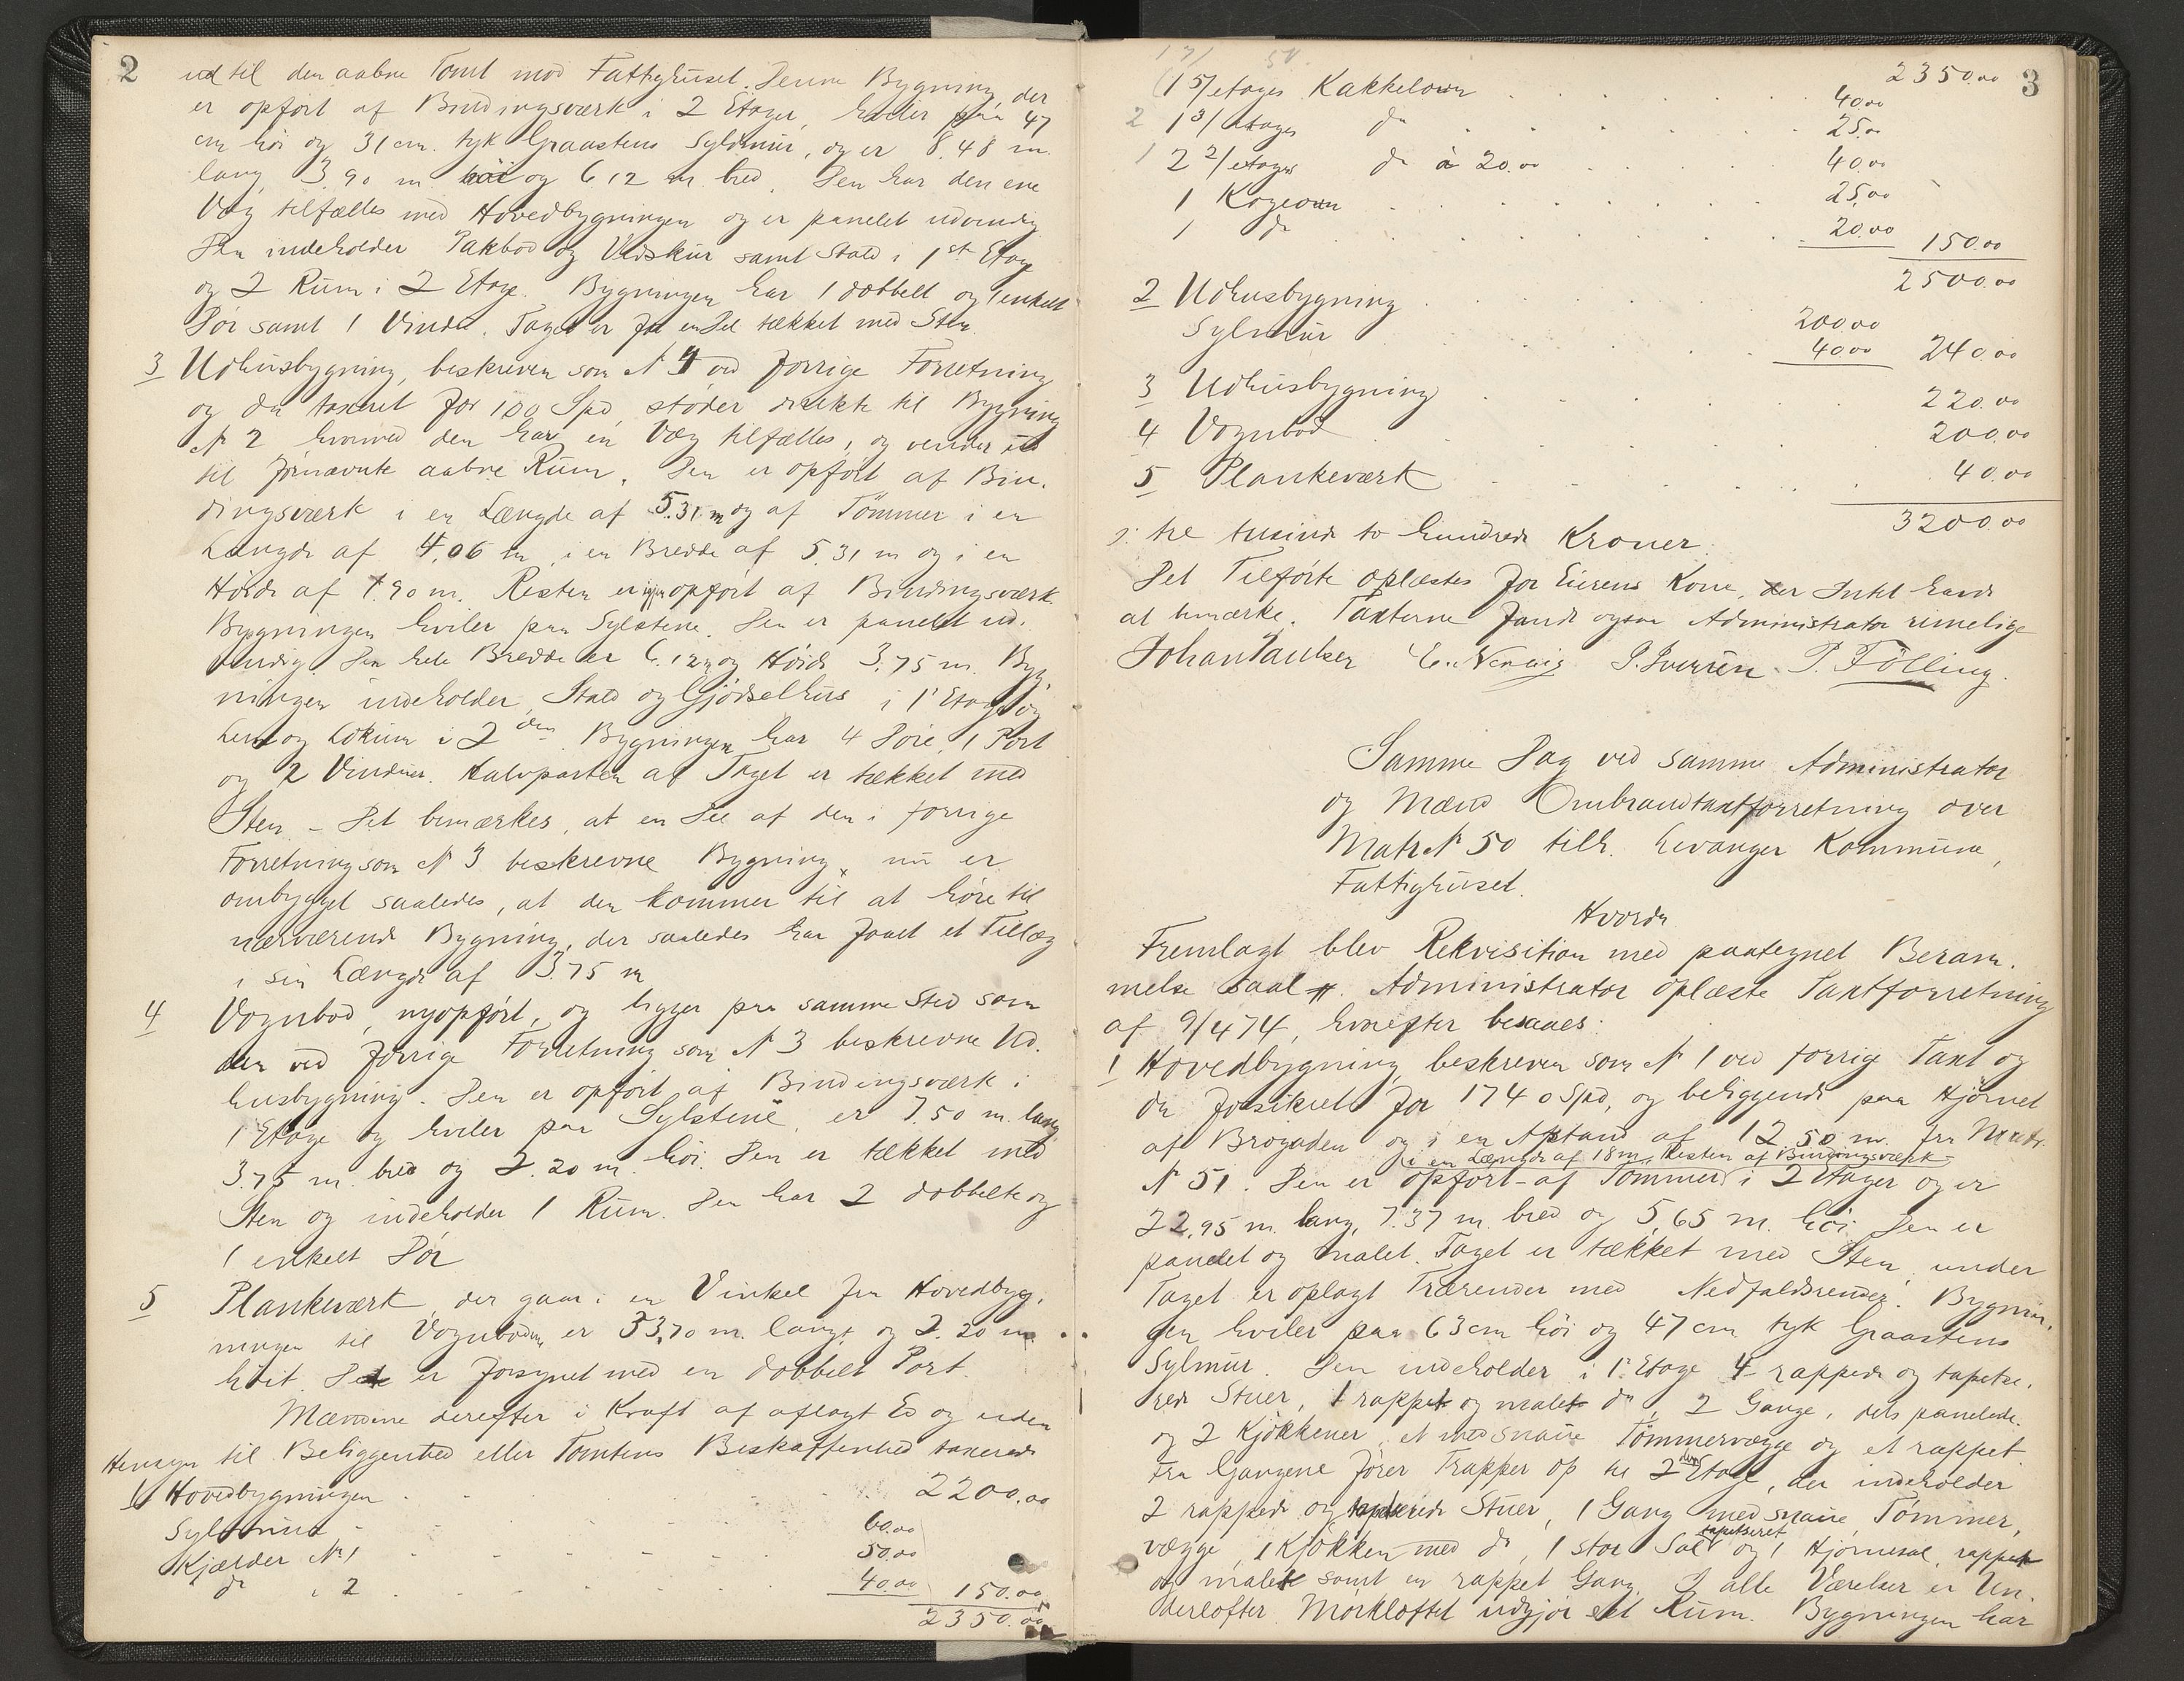 2
ud til den aabne Tomt mod Fattighuset. Denne Bygning, der
er opført af Bindingsværk i 2 Etager, hviler paa 47
cm høi og 31 cm. tyk Graastens Sylmur, og er 8,48 m.
lang, 3.90 m høi og 6,12 m bred. Den har den ene
Væg tilfælles med Hovedbygningen og er panelet udvendig
Den indeholder Pakbod og Vedskur samt Stald i 1ste Etage
og 2 Rum i 2 Etage. Bygningen har 1 dobbelt og 1 enkelt
Dør samt 1 Vindu. Taget er for en Del tækket med Sten.
3 Udhusbygning, beskreven som N 4 ved forrige Forretning
og da taxeret for 100 Spd, støder direkte til Bygning
N 2 hvormed den har en Væg tilfælles, og vender ud
til førnævnte aabne Rum. Den er opført af Bin-
dingsværk i en Længde af 5.31 m og af Tømmer i en
Længde af 4,06 m, i en Bredde af 5.31 m og i en
Høide af 1.90 m. Resten er opført af Bindingsværk.
Bygningen hviler paa Sylstene. Den er panelet ud-
vendig. Den hele Bredde er 6.12 m og Høide 3.75 m. Byg-
ningen indeholder Stald og Gjødselhus i 1' Etage og
Lem og Lokum i 2den. Bygningen har 4 Døre, 1 Port
og 2 Vinduer. Halvparten af Taget er tækket med
Sten. - Det bemærkes, at en Del af den i forrige
Forretning som N 3 beskrevne Bygning, nu er
ombygget saaledes, at den kommer til at høre til
nærværende Bygning, der saaledes har faaet et Tillæg
i sin Længde af 3.75 m
4 Vognbod, nyopført, og ligger paa samme Sted som
den ved forrige Forretning som N 3 beskrevne Ud-
husbygning. Den er opført af Bindingsværk i
1 Etage og hviler paa Sylstene, er 7.50 m. lang
3.75 m. bred og 2.20 m. høi. Den er tækket med
Sten og indeholder 1 Rum. Den har 2 dobbelte og
1 enkelt Dør
5 Plankeværk, der gaar i en Vinkel fra Hovedbyg-
ningen til Vognboden, er 53,70 m. langt og 2.20 m.
høit. Det er forsynet med en dobbelt Port.
Mændene derefter i Kraft af aflagt Ed og uden
Hensyn til Beliggenhed eller Tomtens Beskaffenhed taxerede
1 Hovedbygningen 2200.00
Sylmur 60.00
Kjælder No 1 50.00
do " 2 40.00 150.00
2350.00
3
2350.00
1 5/etages Kakkelovn 40.00
2 1 3/etages do 25.00
1 2 2/etages do à 20.00 40.00
1 Kogeovn 25.00
1 do 20.00 150.00
2500.00
2 Udhusbygning 200.00
Sylmur 40.00 240.00
3 Udhusbygning 220.00
4 Vognbod 200.00
5 Plankeværk 40.00
3200.00
s: tre tusinde to hundrede Kroner.
Det Tilførte oplæstes for Eierens Kone, der Intet havde
at bemærke. Taxterne fandt ogsaa Administrator rimelige
P. Følling.
Samme Dag ved samme Administrator
og Mænd Ombrandtaxtforretning over
Matr N 50 tilh. Levanger Kommune,
Fattighuset.
Hvorda
Fremlagt blev Rekvisition med paategnet Beram-
melse saal. Administrator oplæste Taxtforretning
af 9/4 74, hvorefter besaaes:
1 Hovedbygning, beskreven som N 1 ved forrige Taxt og
da forsikret for 1740 Spd, og beliggende paa Hjørnet
af Brogaden og i en Afstand af 12.50 m. fra Matr.
i en Længde af 18 m, Resten af Bindingsværk
N 51. Den er opført af Tømmer i 2 Etager og er
22,95 m. lang, 7.37 m. bred og 5,65 m. høi. Den er
panelet og malet. Taget er tækket med Sten, under
Taget er oplagt Trærender med Nedfaldsrender. Bygnin-
gen hviler paa 63 cm høi og 47 cm tyk Graastens
Sylmur. Den indeholder i 1' Etage 4 rappede og tapetse-
rede Stuer, 1 rappet og malet do, 2 Gange, dels panelede
og 2 Kjøkkener, et med snaue Tømmervægge og et rappet.
Fra Gangene fører Trapper op til 2den Etage, der indeholder
2 rappede og tapetserede Stuer, 1 Gang med snaue Tømmer-
vægge, 1 Kjøkken med do, 1 stor Sal tapetseret og 1 Hjørnesal, rappet
og malet samt en rappet Gang. I alle Værelser er Un-
derlofter. Mørkloftet udgjør et Rum. Bygningen har